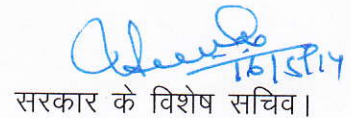 16/5/14
सरकार के विशेष सचिव।